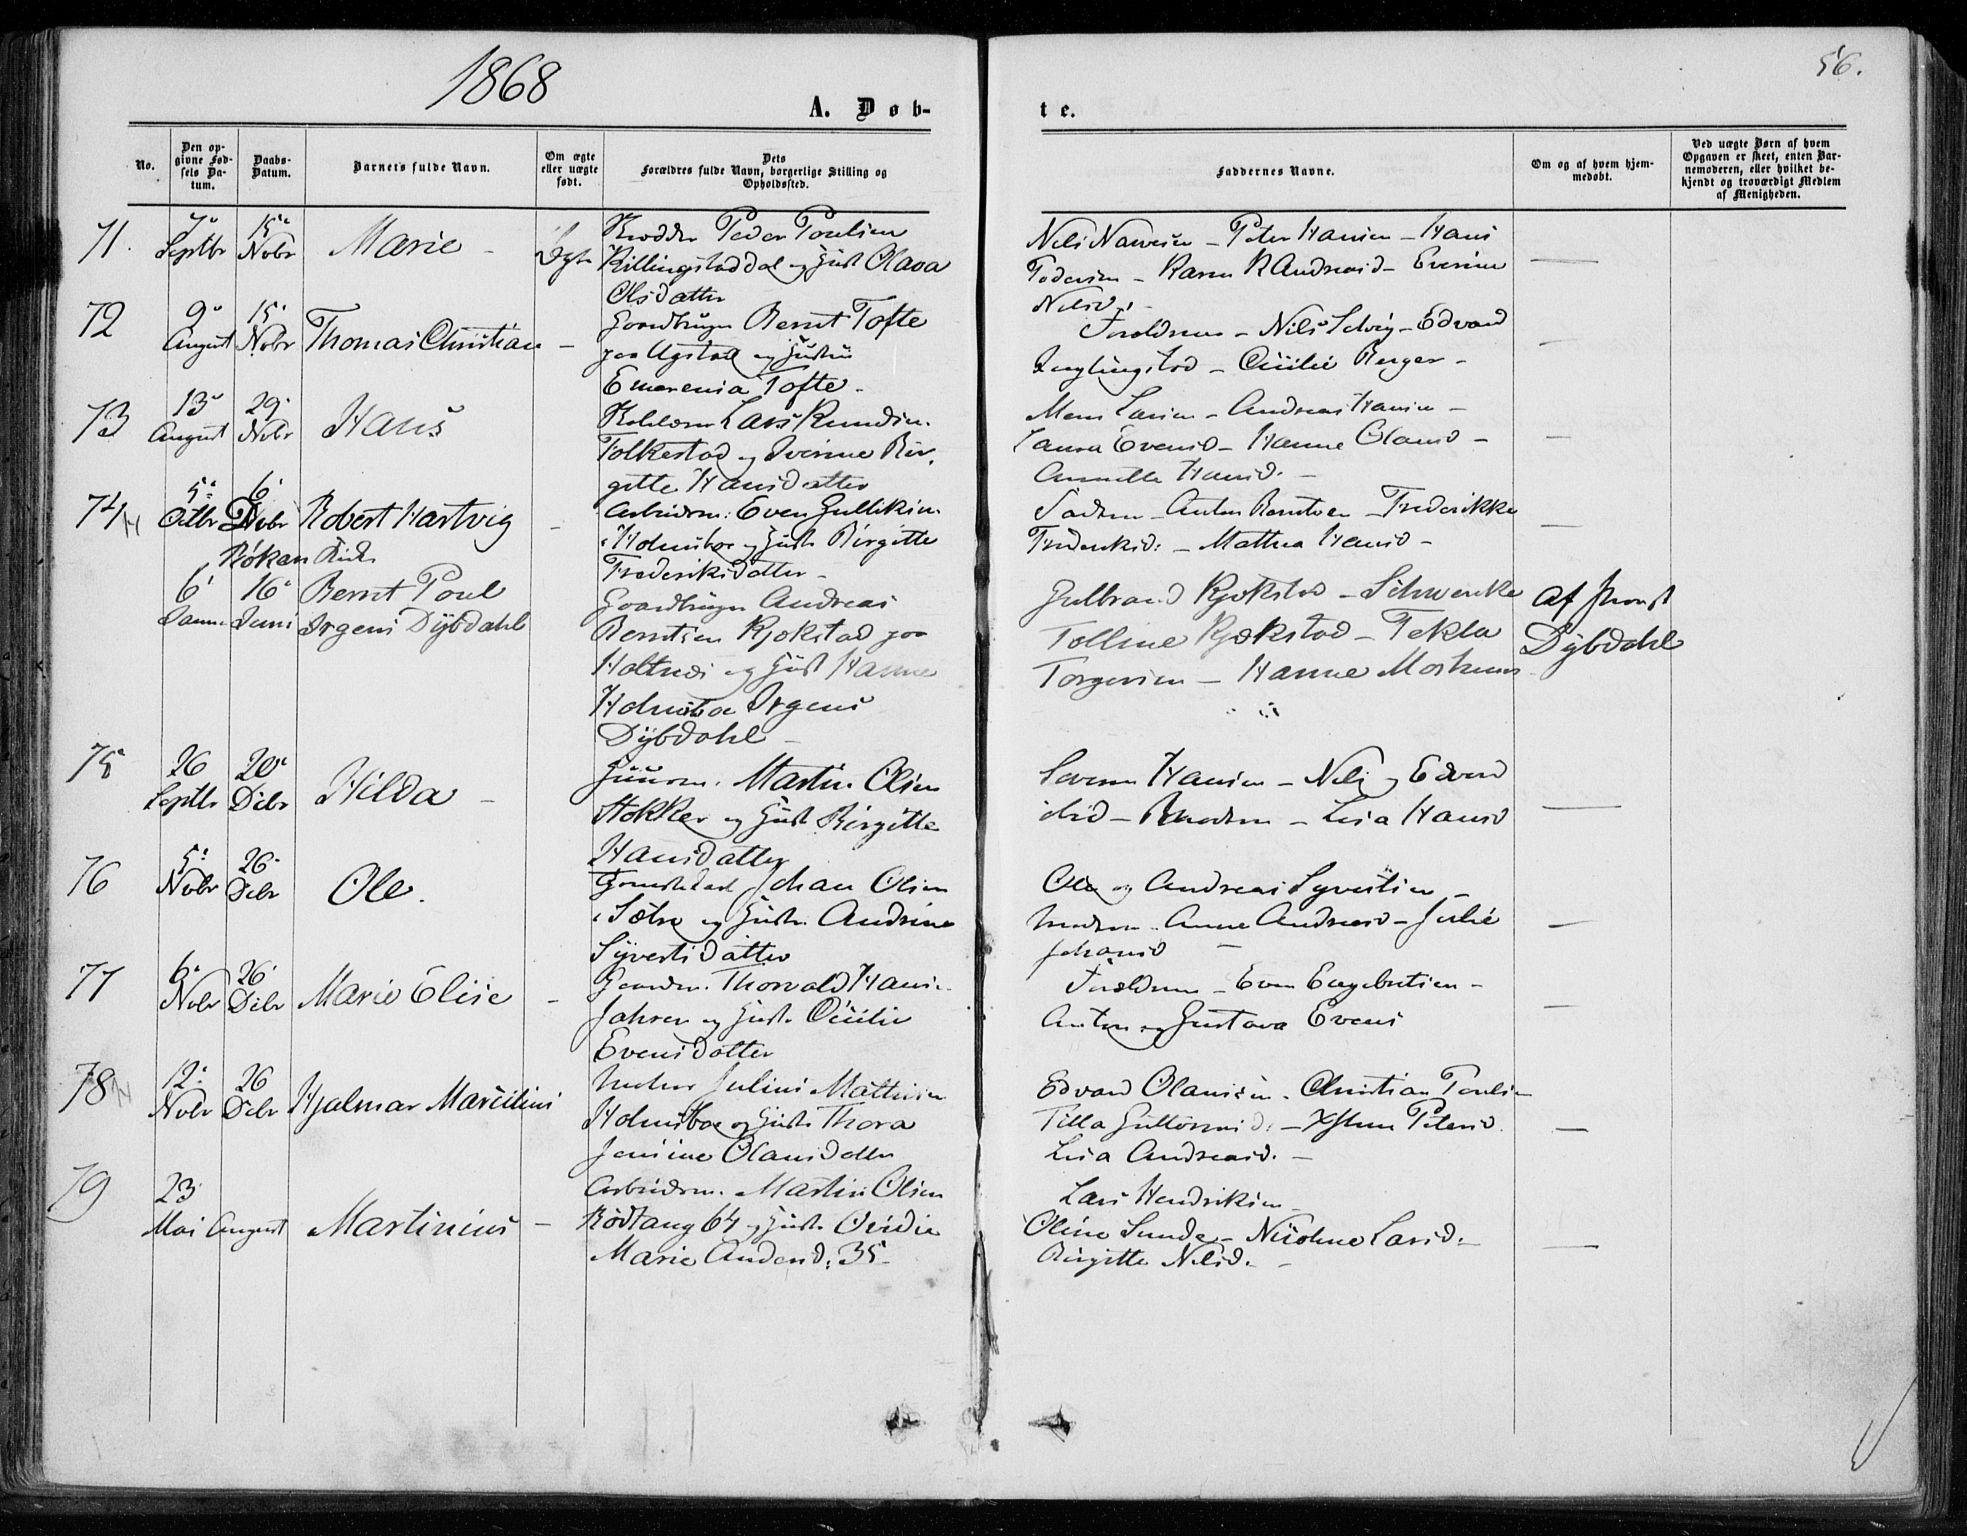 1868
56.
A. Døb-
te.
No.
Den op-
givne Fød-
sels Da-
tum.
Daabs-
Datum.
Barnets fulde Navn.
Om ægte
eller uægte
født.
Dets
Forældres fulde Navn, borgerlige Stilling og
Opholdssted.
Faddernes Navne.
Om og af hvem hjem-
medøbt.
Ved uægte Børn af hvem
Opgaven er skeet, enten Bar-
nemoderen, eller hvilket be-
kjendt og troværdigt Medlem
af Menigheden.
71.
7
Septbr
15
Nobr
Marie -
Ægte
Peder Poulsen
Killingstaddal og Hust Olava
Olsdatter
Peter Hansen - Hans
Pedersen - Karen Andreasd - Everine
Nelsd.
72
9
August
15
Nobr
Thomas Christian -
Gaardbruger Bernt Tofte
paa og Hustru
Emerensia Tofte.
Forældrene - Nils Selvig - Edvard
Engelingstad - Cecilie Berger -
73
13
August
29
Nobr
Hans
Lars Knudsen
Tolkestad og Iverine Bir-
gitte Hansdatter
Mons Larsen - Andreas Hansen -
Laura Evensd - Hanne Olausd -
Hansd. -
74
5
Octbr
6
Debr
Robert Hartvig -
Røken Kirke
Arbeidsm: Even Gulliksen
i Holmsboe og Hust Birgitte
Frederiksdatter -
Faderen - Anton Berntsen - Frederikke
Frederiksd: - Mathea Hansd -
6
16
Juni
Bernt Poul
Irgens Dybdahl
Gaardbruger Andreas
Berntsen Kjøkstad paa
Holtnes og Hust Hanne
Holmboe Irgens
Dybdahl -
Gulbrand Kjøkstad - Schwencke
Tolline Kjøkstad - Tekla
Torgersen - Hanne
Af Provst
Dybdahl
75
26
Septbr
20
Debr
Hilda -
Huusm. Martin Olsen
Stokker og Hust. Birgitte
Hansdatter
Severin Hansen - Nels og Edvard
- Moderen - Lisa Hansd
76
5
Nobr
26
Debr
Ole.
Johan Olsen
i Sætre og Hust. Andrine
Syvertsdatter
Ole og Andreas Syvertsen -
Moderen. Anne Andreasd - Julie
Johansd
77
6
Nobr
26
Debr
Marie Elise -
Gaardm. Thorvald Hansen
Jahren og Hust. Cecilie
Evensdatter
Forældrene - Even Engebretsen -
Anton og Gustava Evens
78
12
Nobr
26
Debr
Hjalmar Marcilius
Julius Mathisen
Holmsboe og Hust. Thora
Jensine Olausdatter
Edvard Olaussen. Christian Poulsen
Tilla Guttormsd. - Petersd.
Lisa Andreasd. -
79
23
Mai
August
Martinius -
Arbeidsm. Martin Olsen
Rødtang 64 og Hust.
Marie Andersd. 35 -
Lars Hendriksen -
Oline Sunde - Nicoline Larsd.
Birgitte Nelsd. -